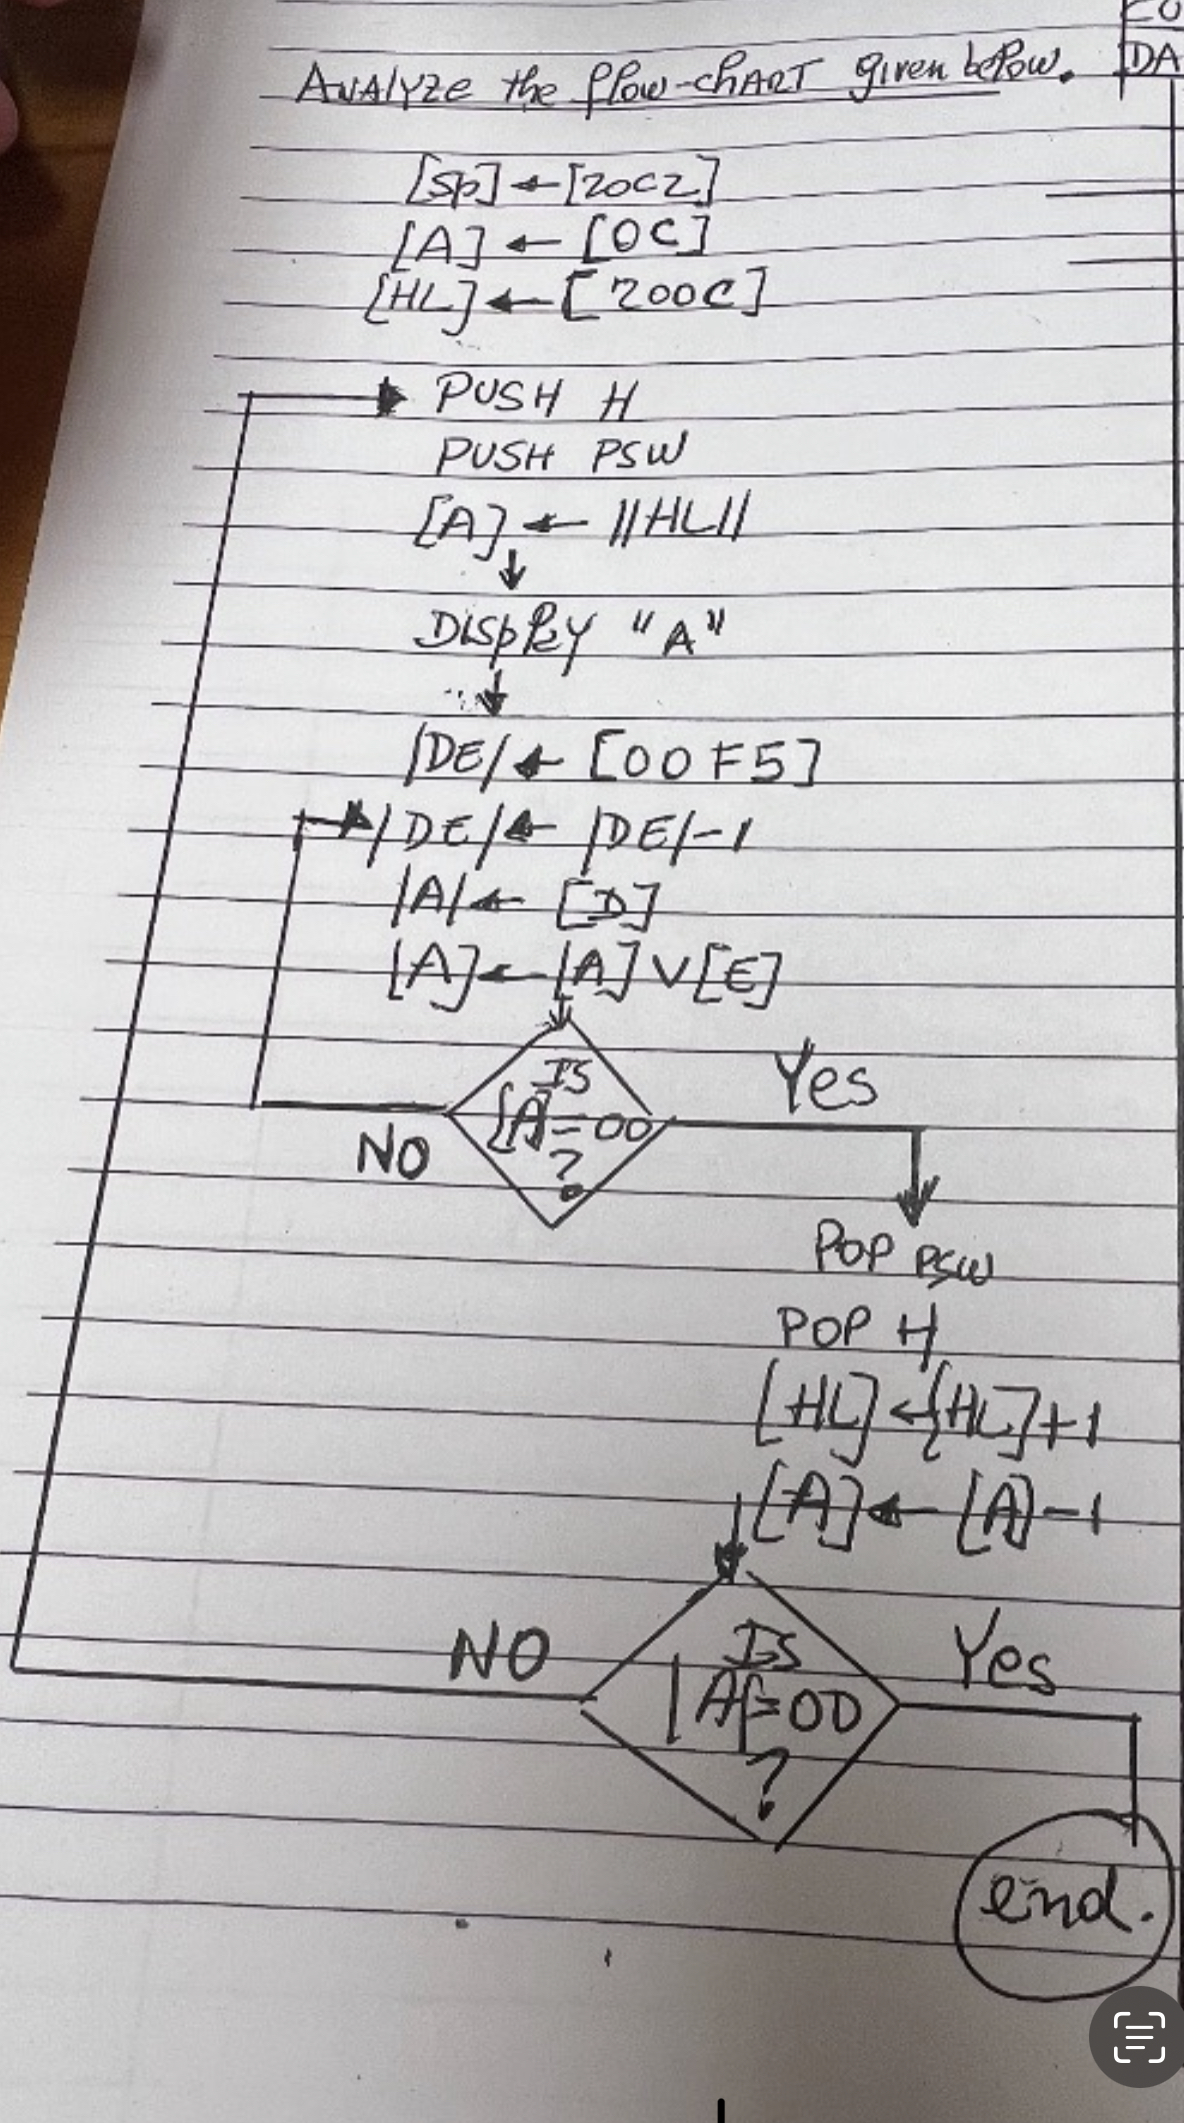 CO
DA
ANALYZE the flow-chART given below.
[SP] ← [20C2]
[A] ← [0C]
[HL] ← [200C]
PUSH H
PUSH PSW
[A] ← ||HL||
↓
DISplay "A"
↓
|DE| ← [00F5]
|DE| ← |DE|-1
|A| ← [D]
[A] ← [A] V [E]
IS
[A]=00
?
Yes
NO
POP PSW
POP H
[HL] ← [HL]+1
[A] ← [A]-1
NO
IS
|A|=00
?
Yes
end.